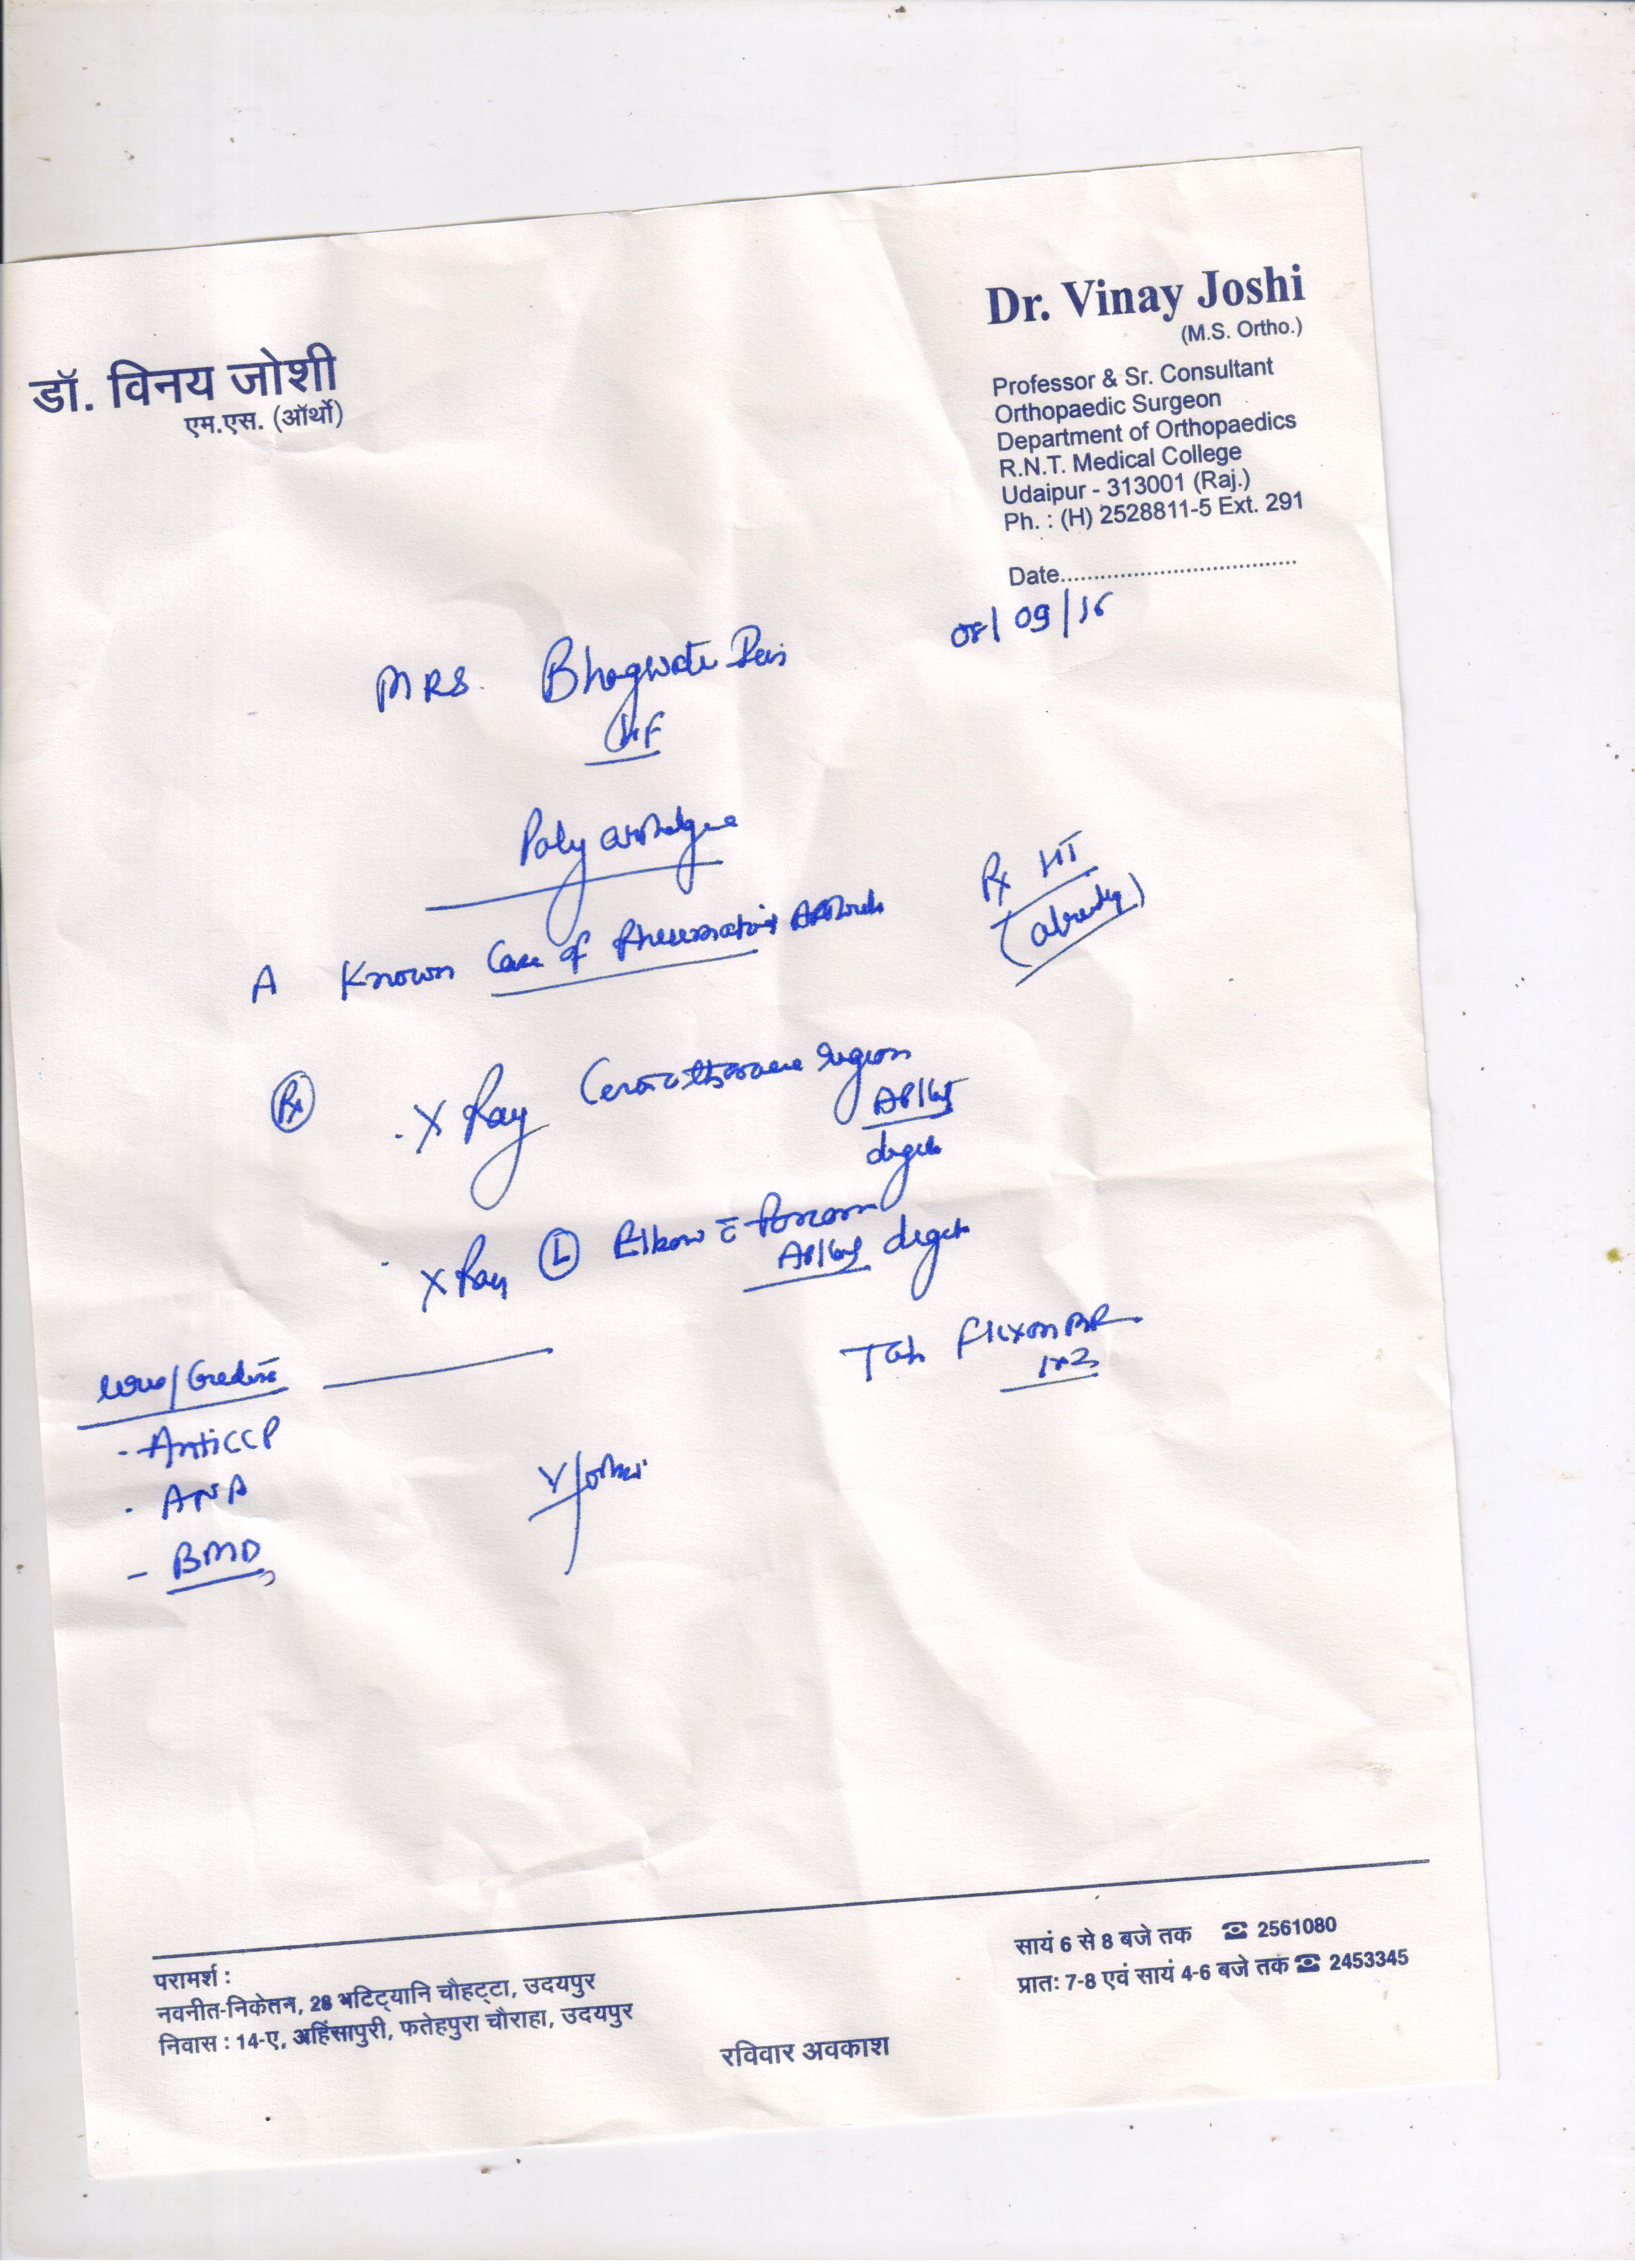 डॉ. विनय जोशी
एम.एस. (ऑर्थो)
Dr. Vinay Joshi
(M.S. Ortho.)
Professor & Sr. Consultant
Orthopaedic Surgeon
Department of Orthopaedics
R.N.T. Medical College
Udaipur - 313001 (Raj.)
Ph. : (H) 2528811-5 Ext. 291
Date....................................
08/09/16
MRS. Bhagwati Devi
Poly arthralgia
Rx HT
(already)
A Known Case of Rheumatoid Arthritis
Rx
. X Ray Cervicothoracic region
AP/Lat
digital
. X Ray (L) Elbow c̄ Forearm
AP/Lat digital
Tab Flexon MR
1x2
- AntiCCP
. ANA
- BMD
परामर्श :
नवनीत-निकेतन, 28 भटि्टयानि चौहट्टा, उदयपुर
निवास : 14-ए, अहिंसापुरी, फतेहपुरा चौराहा, उदयपुर
सायं 6 से 8 बजे तक ☎ 2561080
प्रातः 7-8 एवं सायं 4-6 बजे तक ☎ 2453345
रविवार अवकाश